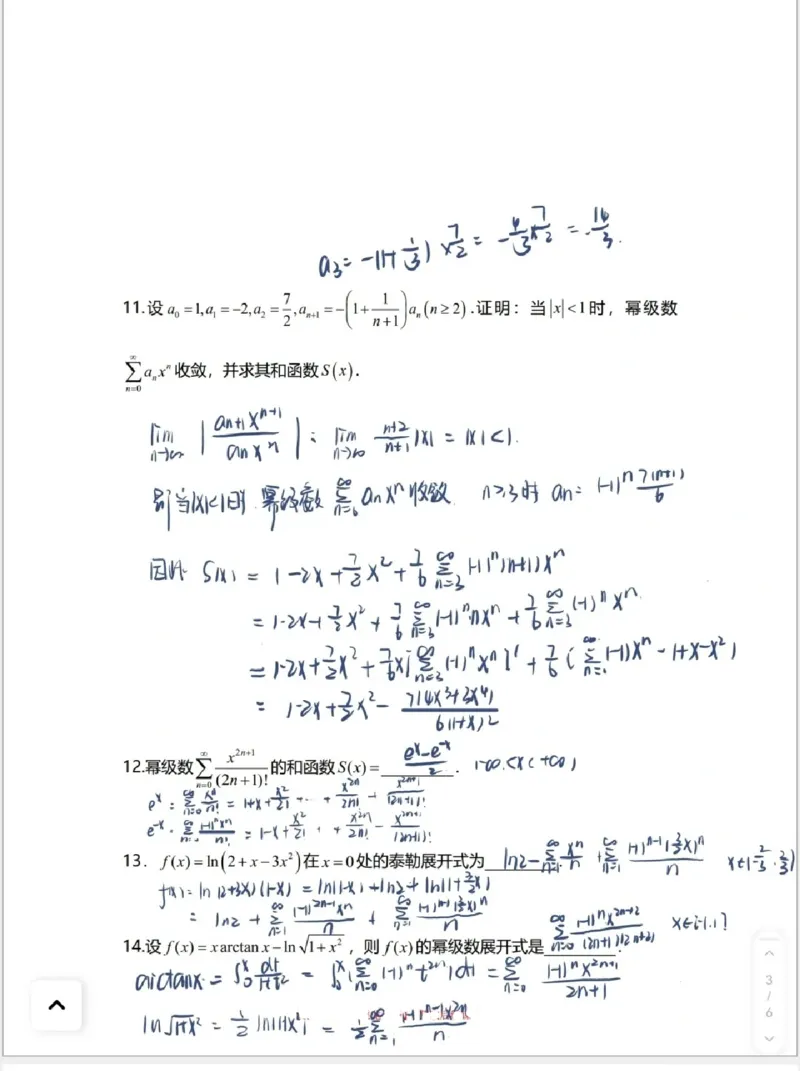 a₃ = -(1+1/3) × 7/2 = -4/3 × 7/2 = -14/3.
11.设 a₀ = 1, a₁ = -2, a₂ = 7/2, aₙ₊₁ = -(1 + 1/(n+1)) aₙ (n ≥ 2) .证明：当 |x| < 1 时，幂级数
∑_{n=0}^{∞} aₙxⁿ 收敛，并求其和函数 S(x) .
lim_{n→∞} | aₙ₊₁xⁿ⁺¹ / aₙxⁿ | = lim_{n→∞} (n+2)/(n+1) |x| = |x| < 1.
则当|x|<1时 幂级数 ∑_{n=0}^{∞} aₙxⁿ 收敛. n≥3时 aₙ = (-1)ⁿ 7(n+1)/6
因此 S(x) = 1-2x+7/2 x² + 7/6 ∑_{n=3}^{∞} (-1)ⁿ(n+1)xⁿ
= 1-2x+7/2 x² + 7/6 ∑_{n=3}^{∞} (-1)ⁿnxⁿ + 7/6 ∑_{n=3}^{∞} (-1)ⁿxⁿ
= 1-2x+7/2 x² + 7/6 x[∑_{n=3}^{∞} (-1)ⁿxⁿ]' + 7/6 (∑ (-1)xⁿ -1+x-x²)
= 1-2x+7/2 x² - 7(4x³+3x⁴) / 6(1+x)²
12.幂级数 ∑_{n=0}^{∞} x²ⁿ⁺¹/(2n+1)! 的和函数 S(x) = (eˣ-e⁻ˣ)/2 . (-∞<x<+∞)
eˣ = ∑_{n=0}^{∞} xⁿ/n! = 1+x+x²/2! + ... + x²ⁿ/2n! + x²ⁿ⁺¹/(2n+1)!
e⁻ˣ = ∑_{n=0}^{∞} (-1)ⁿxⁿ/n! = 1-x+x²/2! + x²ⁿ/2n! - x²ⁿ⁺¹/(2n+1)!
13. f(x) = ln(2 + x - 3x²) 在 x = 0 处的泰勒展开式为 ln2 - ∑_{n=1}^{∞} xⁿ/n + ∑_{n=1}^{∞} (-1)ⁿ⁻¹(3/2 x)ⁿ/n x∈(-2/3, 2/3)
f(x) = ln(2+3x)(1-x) = ln(1-x)+ln2+ln(1+3/2 x)
= ln2 + ∑_{n=1}^{∞} (-1)²ⁿ⁻¹xⁿ/n + ∑_{n=1}^{∞} (-1)ⁿ⁻¹(3/2 x)ⁿ/n
14.设 f(x) = x arctan x - ln √(1 + x²) ，则 f(x) 的幂级数展开式是 ∑_{n=0}^{∞} (-1)ⁿx²ⁿ⁺²/(2n+1)(2n+2) x∈[-1,1]
arctanx = ∫₀ˣ dt/(1+t²) = ∫₀ˣ (∑_{n=0}^{∞} (-1)ⁿt²ⁿ)dt = ∑_{n=0}^{∞} (-1)ⁿx²ⁿ⁺¹/(2n+1)
ln√(1+x²) = 1/2 ln(1+x²) = 1/2 ∑_{n=1}^{∞} (-1)ⁿ⁻¹x²ⁿ/n
3
/
6